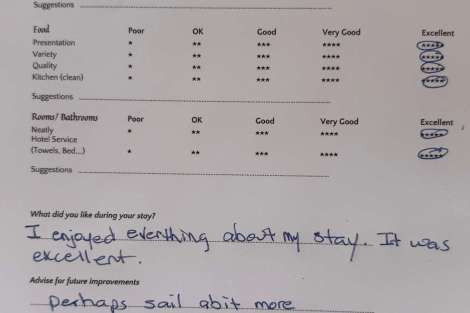 Suggestions
Food Poor OK Good Very Good Excellent
Presentation * ** *** **** *****
Variety * ** *** **** *****
Quality * ** *** **** *****
Kitchen (clean) * ** *** **** *****
Suggestions
Rooms/ Bathrooms Poor OK Good Very Good Excellent
Neatly * ** *** **** *****
Hotel Service
(Towels, Bed...) * ** *** **** *****
Suggestions
What did you like during your stay?
I enjoyed everthing about my stay. It was
excellent.
Advise for future improvements
perhaps sail abit more